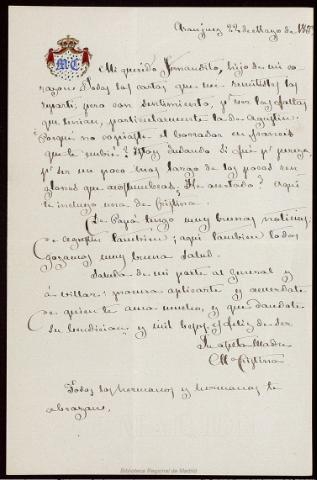 Aranjuez 22 de Mayo de
MC
Mi querido Fernandito, hijo de mi co-
razon: Todas las cartas que me remitistes las
repartí; pero con sentimiento, pr ver las faltas
que tenian, particularmente la de Agustin.
¿Porqué no copiaste el borrador en frances
que te embié? Estoy dudando si fué pr pereza,
pr ser un poco mas largo de los pocos ren-
glones que acostumbras; ¿He acertado? Aqui
te incluyo una de Cristina.
De Papá tengo muy buenas noticias,
de Agustin tambien; aqui tambien todos
gozamos muy buena salud.
Saluda de mi parte al General y
á Villar: procura aplicarte y acuerdate
de quien te ama mucho, y que dandote
su bendicion y mil besos es feliz de ser
Tu afta Madre
M Cristina
Todos los hermanos y hermanas te
abrazan.
Biblioteca Regional de Madrid